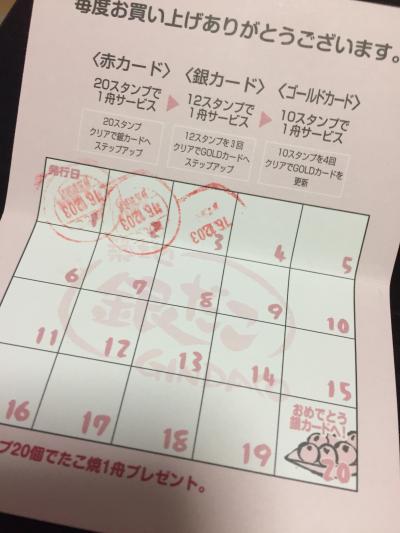 毎度お買い上げありがとうございます。
〈赤カード〉 〈銀カード〉 〈ゴールドカード〉
20スタンプで 12スタンプで 10スタンプで
1舟サービス ▶ 1舟サービス ▶ 1舟サービス
20スタンプ 12スタンプを3回 10スタンプを4回
クリアで銀カードへ クリアでGOLDカードへ クリアでGOLDカードを
ステップアップ ステップアップ 更新
発行日
'16.12.03 '16.12.03 '16.12.03
1 2 3 4 5
6 7 8 9 10
銀だこ
11 12 13 14 15
GINDACO
おめでとう
銀カードへ!
16 17 18 19 20
プ20個でたこ焼1舟プレゼント。